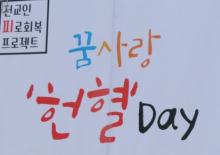 전교인
피로회복
프로젝트
꿈사랑
'헌혈' Day